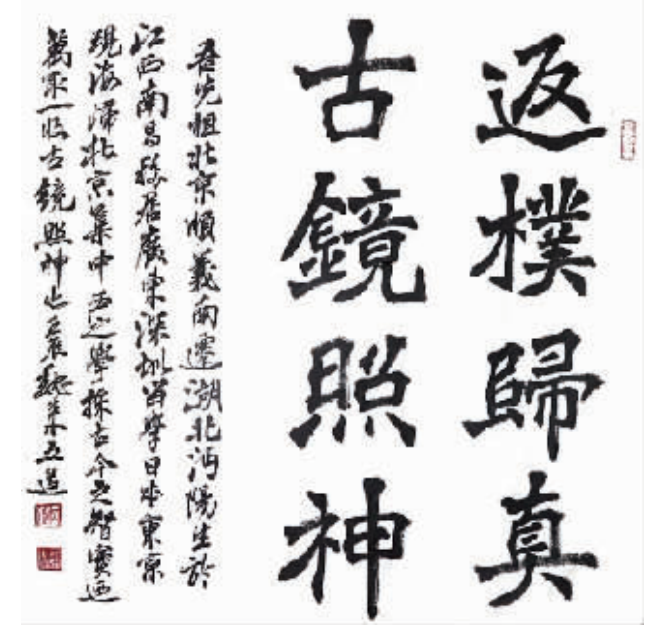 返樸歸真
古鏡照神
吾先祖北京順義南遷湖北沔陽生於
江西南昌移居廣東深圳留學日本東京
現海歸北京集中西之學探古今之智實
萬眾一心古鏡照神也